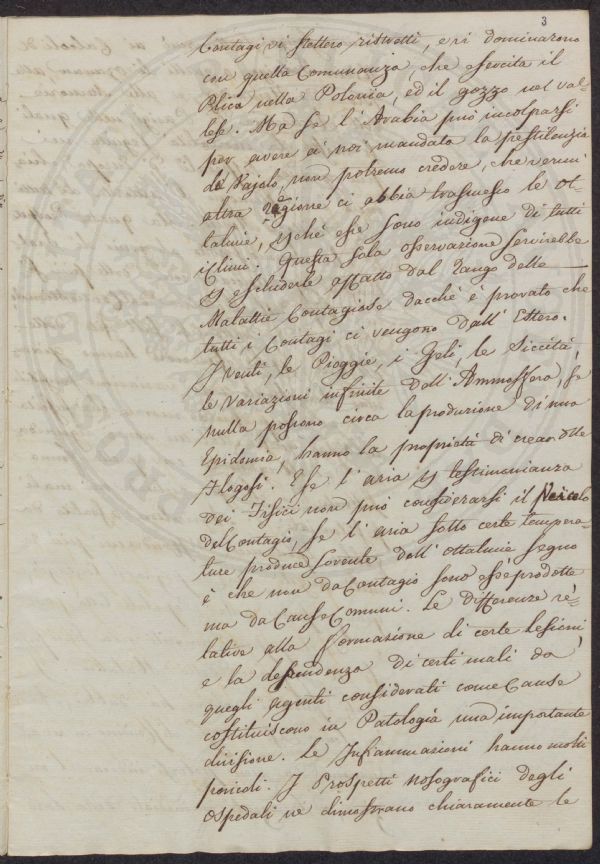 3
Contagi vi stettero ristretti, e vi dominarono
con quella Comunanza, che esercita il
Plica nella Polonia, ed il gozzo nel val-
lese. Ma se l'Arabia può incolparsi
per avere a noi mandato la pestilenzia
del Vajolo, non potremo credere, che veruna
altra regione ci abbia trasmesso le Ot-
talmie, esse sono indigene di tutti
i Climi. Questa sola osservazione servirebbe
escluderle affatto dal rango delle
Malattie Contagiose dacchè è provato che
tutti i Contagi ci vengono dall'Estero.
I Venti, le Pioggie, i Geli, le Siccità,
le Variazioni infinite dell'Ammosfera, se
nulla possono circa la produzione di una
Epidemia, hanno la proprietà di creare delle
Flogosi. E se l'aria testimonianza
dei Fisici non può considerarsi il Veicolo
del Contagio, se l'aria sotto certe tempera-
ture produce sovente dell'ottalmie segno
è che non da Contagio sono esse prodotte
ma da Cause Comuni. Le differenze re-
lative alla formazione di certe Lesioni
e la dependenza di certi mali da
quegli agenti considerati come Cause
costituiscono in Patologia una importante
divisione. Le Infiammazioni hanno molti
pericoli. I Prospetti nosografici degli
Ospedali ne dimostrano chiaramente le